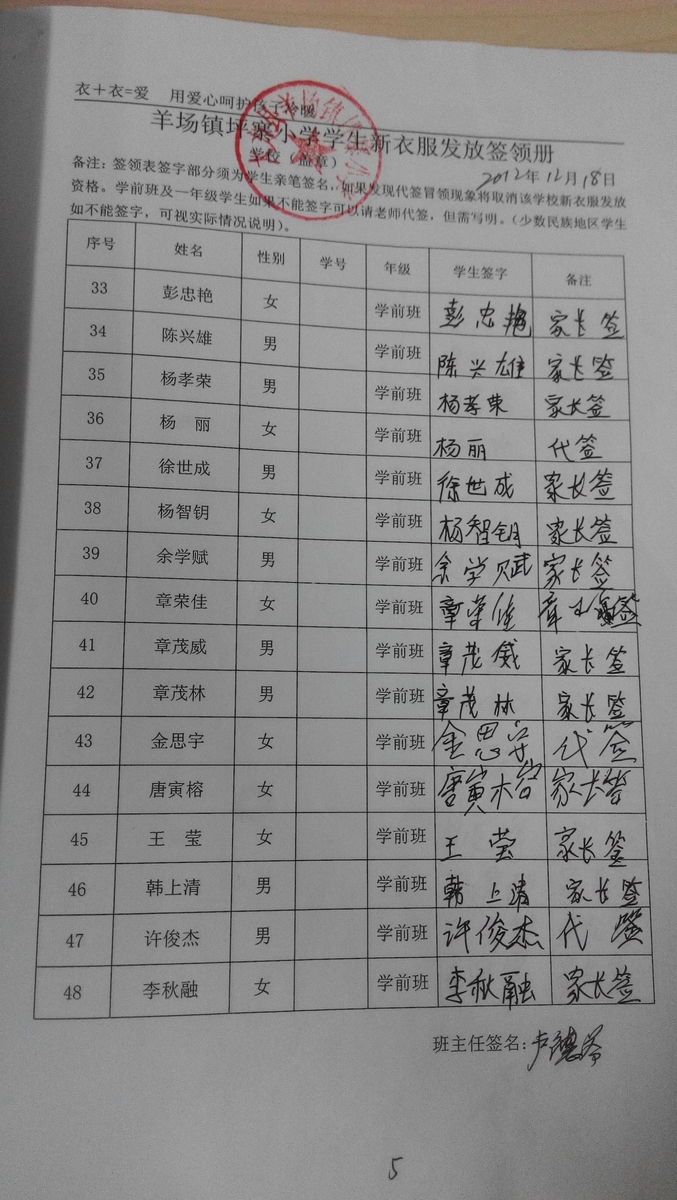 衣+衣=爱 用爱心呵护孩子冷暖
羊场镇坪寨小学学生新衣服发放签领册
学校(盖章)
2012年12月18日
备注:签领表签字部分须为学生亲笔签名,如果发现代签冒领现象将取消该学校新衣服发放
资格。学前班及一年级学生如果不能签字可以请老师代签,但需写明。(少数民族地区学生
如不能签字,可视实际情况说明)。
序号 姓名 性别 学号 年级 学生签字 备注
33 彭忠艳 女 学前班 彭忠艳 家长签
34 陈兴雄 男 学前班 陈兴雄 家长签
35 杨孝荣 男 学前班 杨孝荣 家长签
36 杨 丽 女 学前班 杨丽 代签
37 徐世成 男 学前班 徐世成 家长签
38 杨智钥 女 学前班 杨智钥 家长签
39 余学赋 男 学前班 余学赋 家长签
40 章荣佳 女 学前班 章荣佳 签
41 章茂威 男 学前班 章茂威 家长签
42 章茂林 男 学前班 章茂林 家长签
43 金思宇 女 学前班 金思宇 代签
44 唐寅榕 女 学前班 唐寅榕 家长签
45 王 莹 女 学前班 王莹 家长签
46 韩上清 男 学前班 韩上清 家长签
47 许俊杰 男 学前班 许俊杰 代签
48 李秋融 女 学前班 李秋融 家长签
班主任签名:卢德
5